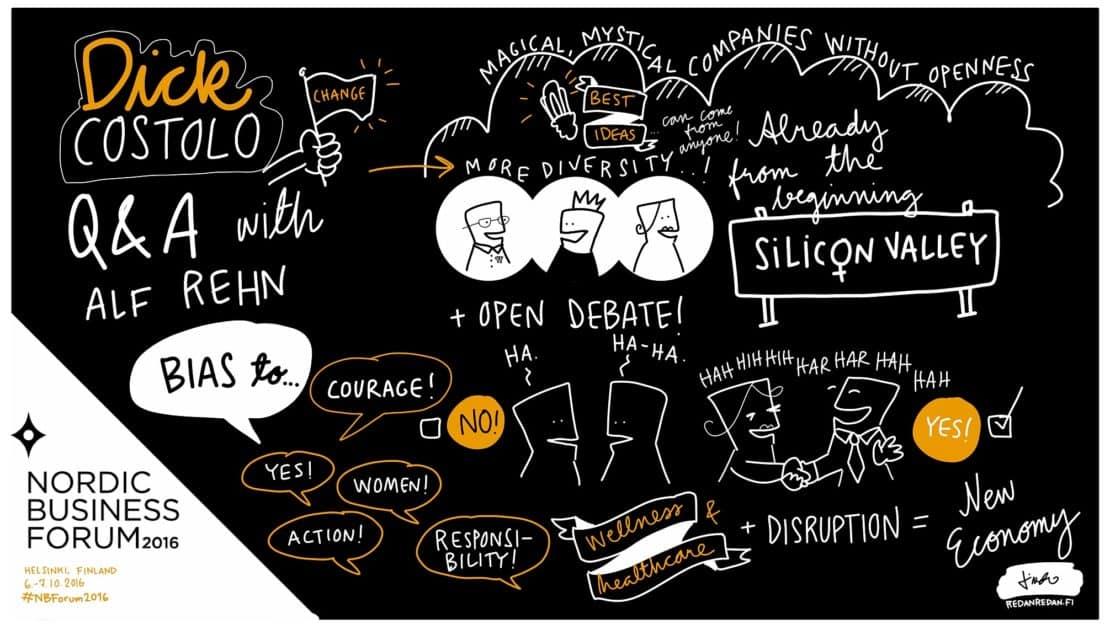 Dick
COSTOLO
CHANGE
Q&A with
ALF REHN
MAGICAL, MYSTICAL COMPANIES WITHOUT OPENNESS
BEST
IDEAS
...can come
from
anyone!
MORE DIVERSITY...!
Already
from the
beginning
SILICON VALLEY
+ OPEN DEBATE!
BIAS to...
COURAGE!
YES!
WOMEN!
ACTION!
RESPONSI-
BILITY!
NO!
HA.
HA-HA.
HAH HIH HIH HAR HAR HAH
HAH
YES!
Wellness &
healthcare
+ DISRUPTION =
New
Economy
NORDIC
BUSINESS
FORUM2016
HELSINKI, FINLAND
6.-7.10.2016
#NBForum2016
REDANREDAN.FI